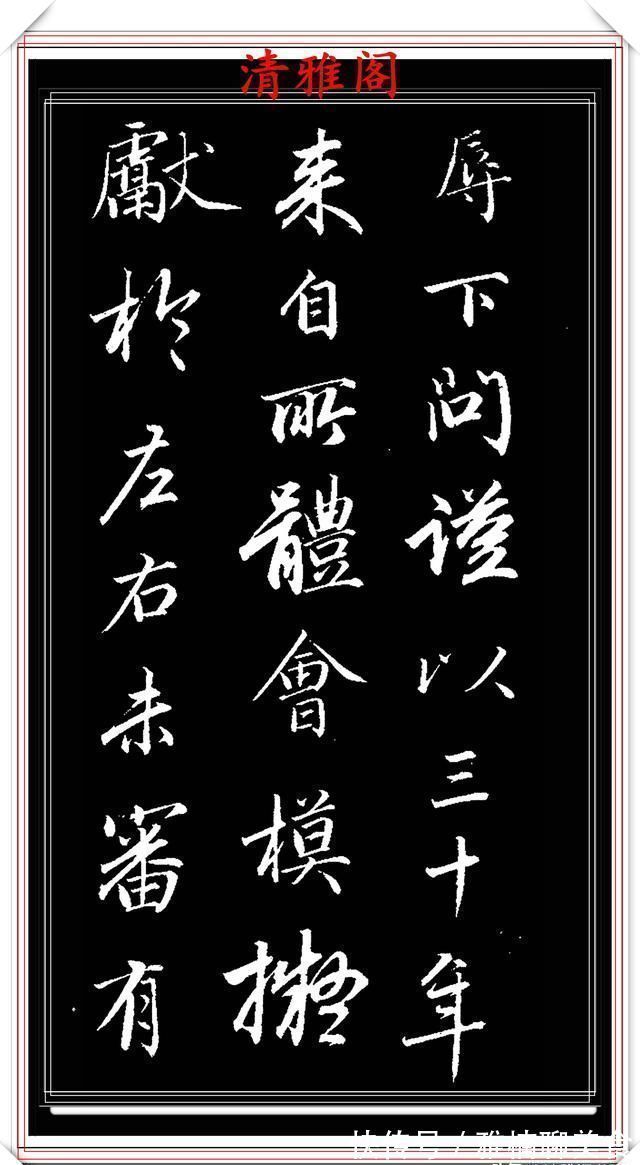 清雅阁
辱下问谨以三十年
来自所體會模擬
獻於左右未審有
快传号／雅楠聊美食